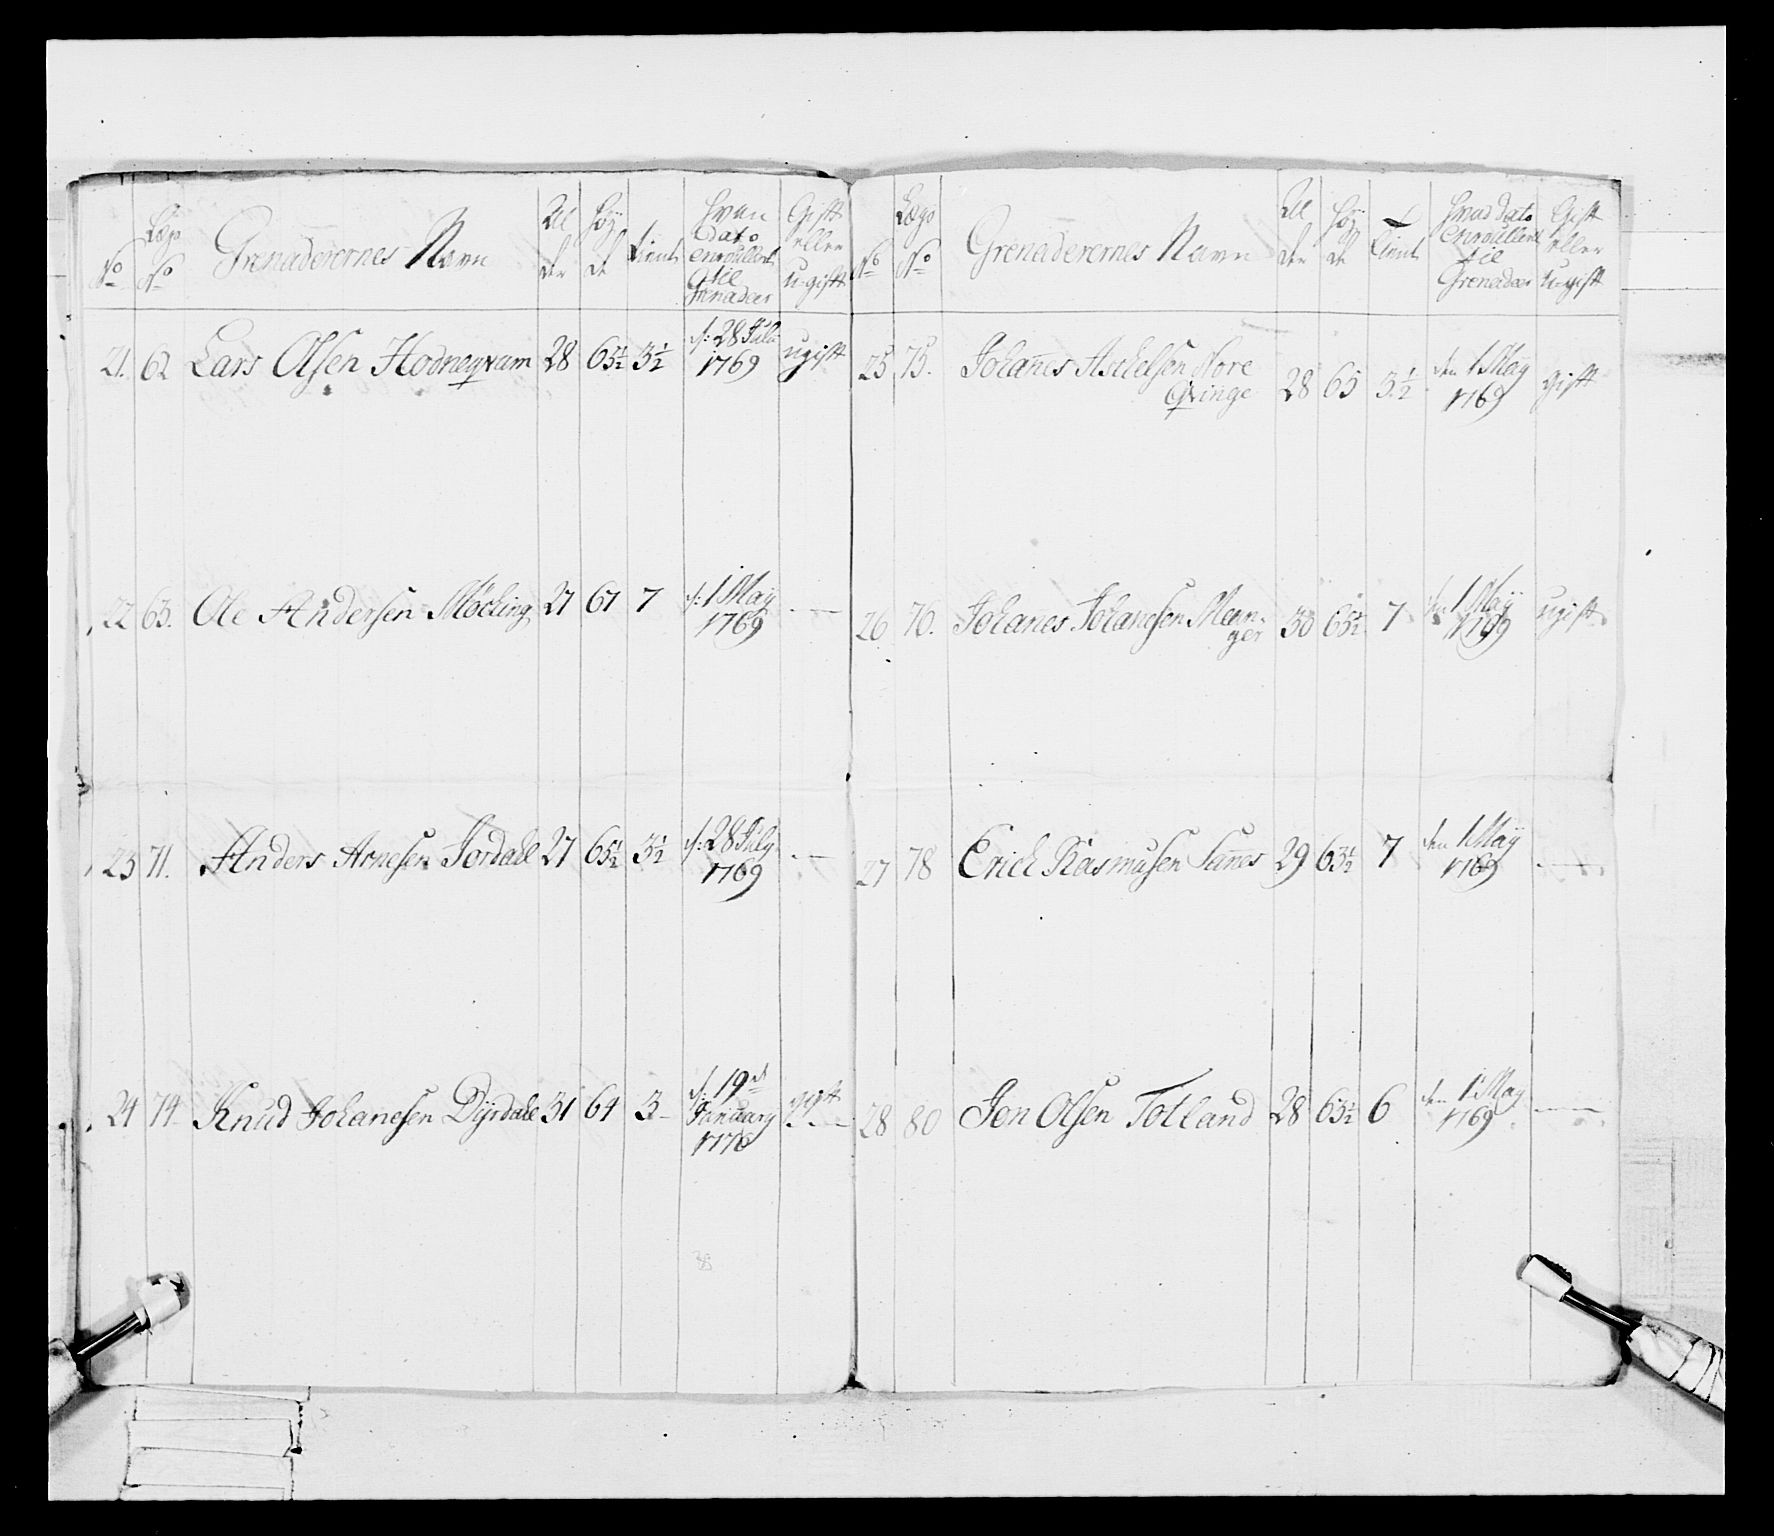 No
Lægs No
Grenaderernes Navn
Al der
Höy de
tient
Hvan dato enroullert til Grenadeer
Gift eller ugift
21. 62 Lars Olsen Hodneqvam 28 63½ 3½ d: 28 July 1769 ugift
22 63. Ole Andersen Möcling 27 67 7 d: 1 May 1769 . —
23 71. Anders Arnesen Jordall 27 65½ 3½ d: 28 July 1769 . —
24 74 Knud Johanesen Dyrdale 31 64 3 d. 19de January 1770 gift
No
Lægs No
Grenaderernes Navn
Al der
Höy de
tient
Hvad dato enroullert til Grenadeer
Gift eller ugift
25 75. Johanes Aschelsen Nore
Qvinge 28 65 3½ den 1 May 1769 gift
26 76. Johanes Johanesen Man-
ger 30 65½ 7 den 1 May 1769 ugift
27 78 Erich Rasmusen Sanes 29 63½ 7 den 1 May 1769 —
28 80 Jon Olsen Totland 28 63½ 6 den 1 May 1769 —